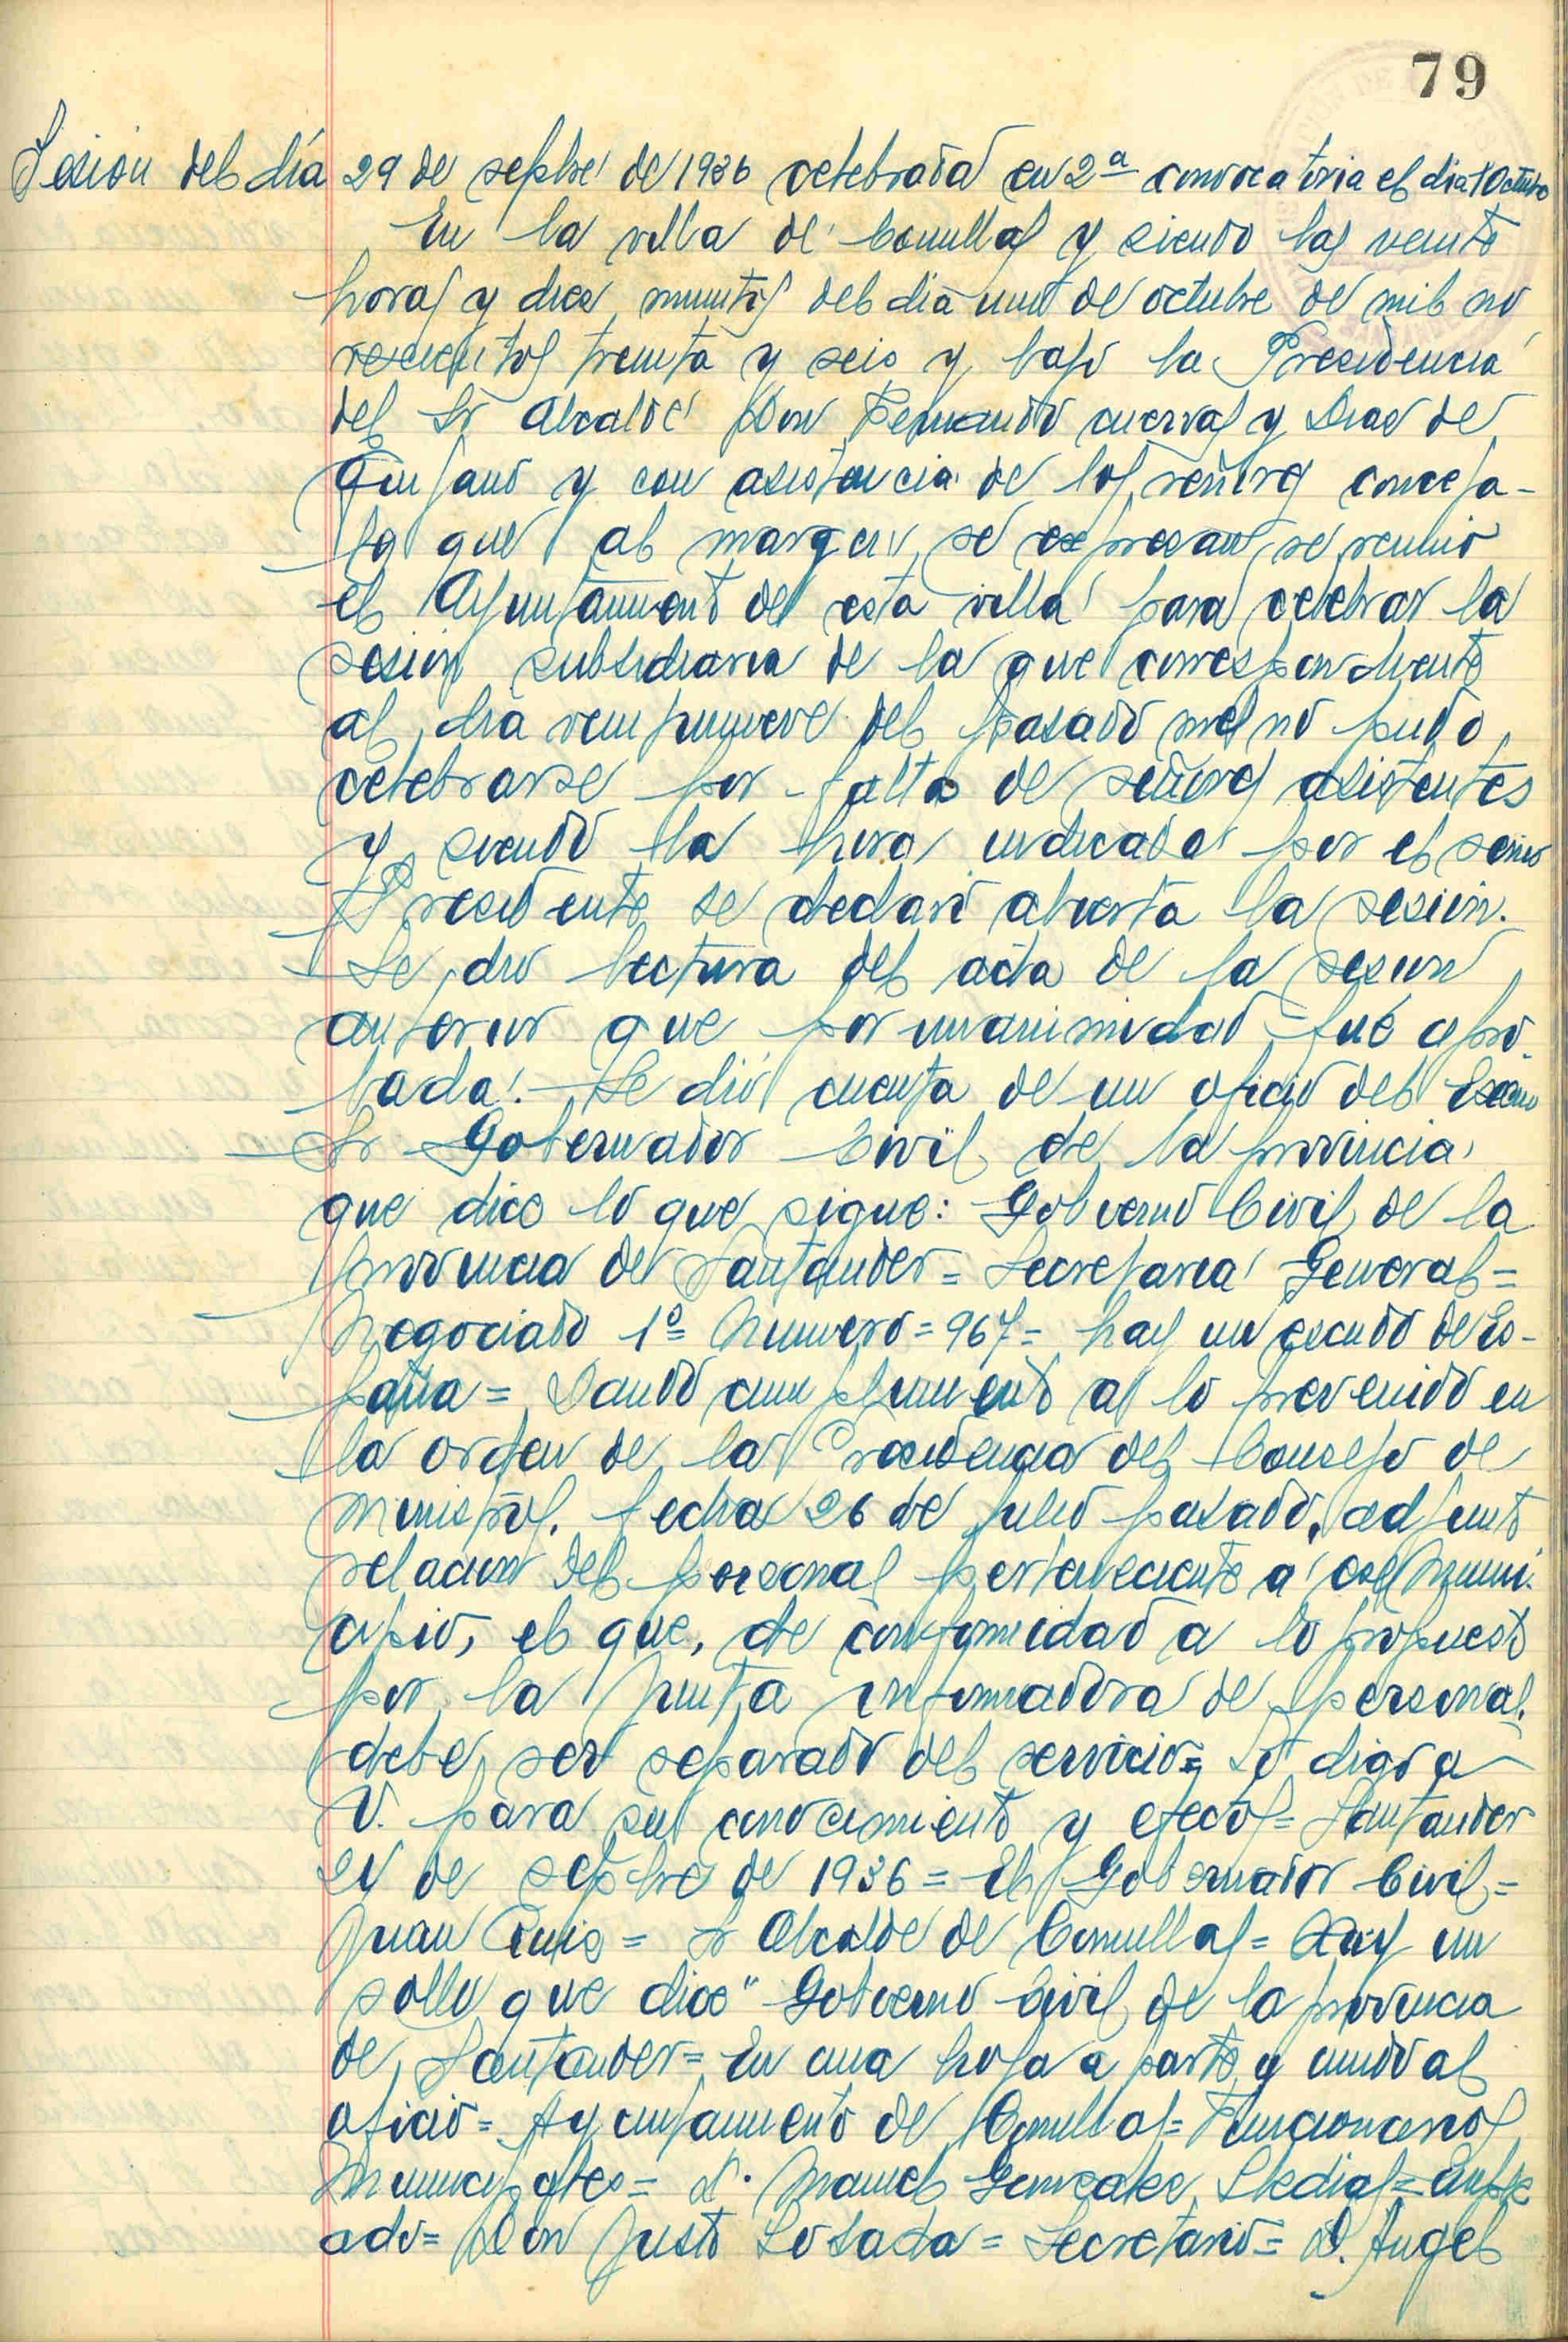 79
Sesión del día 29 de sepbre de 1936 celebrada en 2ª convocatoria el dia 1 Octubre
En la villa de Comillas y siendo las veinte
horas y diez minutos del dia uno de octubre de mil no
vecientos treinta y seis y bajo la Presidencia
del Sr Alcalde Don Fernando cuevas y Diaz de
Quijano y con asistencia de los señores conceja-
les que al margen se expresan, se reunió
el Ayuntamiento de esta villa para celebrar la
sesion subsidiaria de la que correspondiente
al dia veinpinueve del pasado mes no pudo
celebrarse por falta de señores asistentes
y siendo la hora indicada por el señor
Presidente se declaró abierta la sesión.
Se dio lectura del acta de la sesion
anterior que por unanimidad fué apro-
bada.- Se dió cuenta de un oficio del Excmo
Sr Gobernador Civil de la provincia
que dice lo que sigue: Gobierno Civil de la
provincia de Santander = Secretaria General =
Negociado 1º = Numero = 967 = hay un escudo de Es-
paña = Dando cumplimiento a lo prevenido en
la orden de la Presidencia del Consejo de
Ministros. fecha 26 de Julio pasado, adjunto
relacion del personal perteneciente a ese Muni-
cipio, el que, de conformidad a lo propuesto
por la Junta informadora de personal,
debe ser separado del servicio = Lo digo a
V. para su conocimiento y efectos = Santander
21 de sepbre de 1936 = El Gobernador Civil =
Juan Ruiz = Sr Alcalde de Comillas = Hay un
sello que dice "Gobierno Civil de la provincia
de Santander = En una hoja a parte y unido al
oficio = Ayuntamiento de Comillas = Funcionarios
Municipales = D. Manuel Gonzalez Lledias = Emple
ado = Don Justo Losada = Secretario = D. Angel